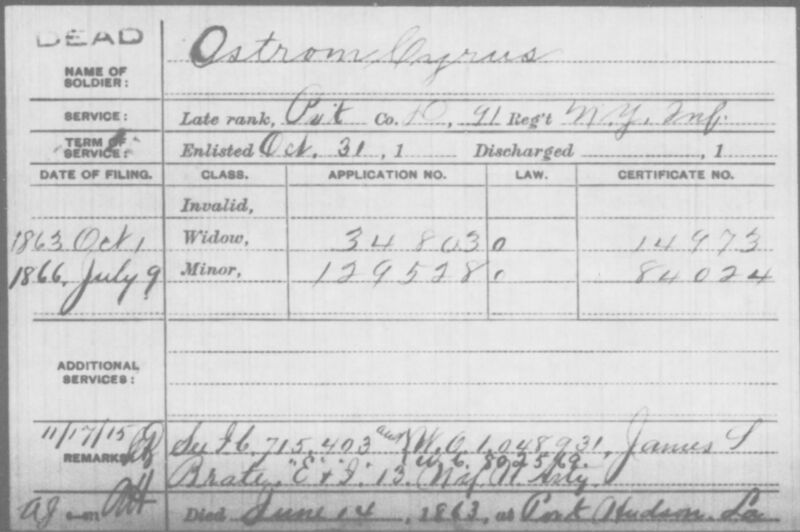 DEAD
NAME OF SOLDIER: Ostrom Cyrus
SERVICE: Late rank, Pvt Co. D, 91 Reg't N.Y. Inf.
TERM OF SERVICE: Enlisted Oct. 31, 1 Discharged , 1
DATE OF FILING. CLASS. APPLICATION NO. LAW. CERTIFICATE NO.
Invalid,
1863 Oct 1 Widow, 34803 0 14973
1866, July 9 Minor, 129528 0 84024
ADDITIONAL SERVICES:
11/17/15
REMARKS: See I.C. 715,403 and W.O. 1,048,931, James S
W.C. 802569.
Brate, "E & I" 13. N.Y. H Arty.
Died June 14, 1863, at Port Hudson La